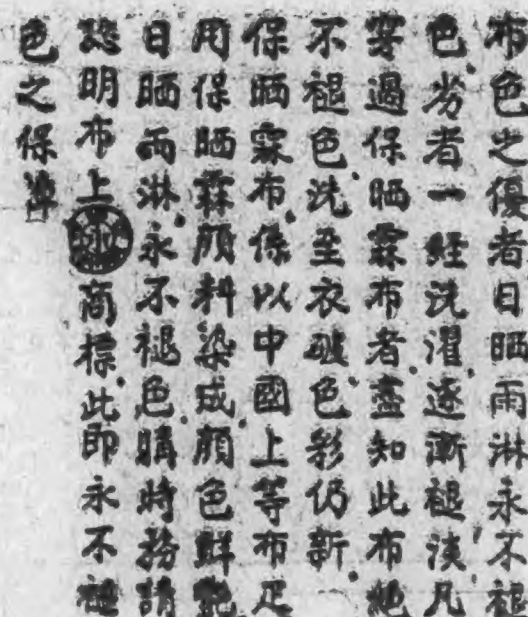 布色之優者日晒雨淋永不褪
色、劣者一經洗濯逐漸褪淡、凡
穿過保晒霖布者、盡知此布絕
不褪色、洗至衣破色彩仍新、
保晒霖布、係以中國上等布疋
用保晒霖顏料染成、顏色鮮艷
日晒雨淋、永不褪色、購時務請
認明布上商標、此即永不褪
色之保準